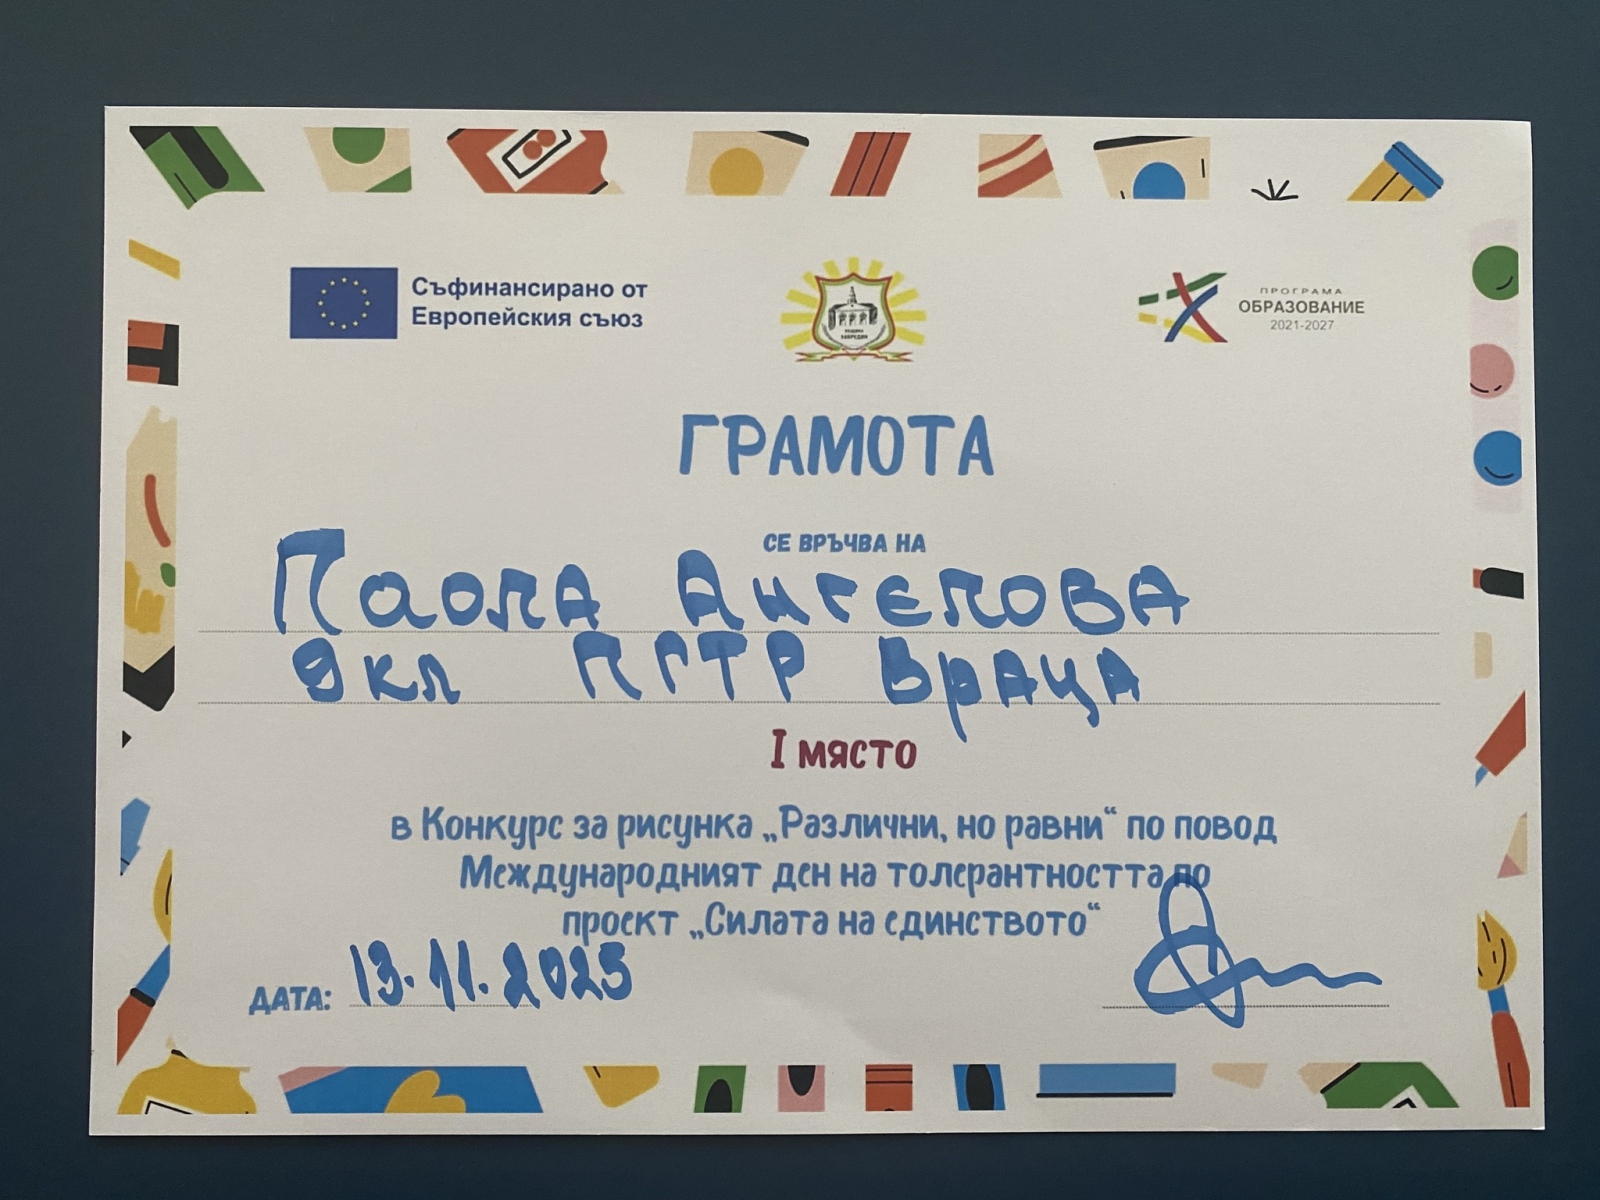 Съфинансирано от
Европейския съюз
ПРОГРАМА
ОБРАЗОВАНИЕ
2021-2027
ГРАМОТА
СЕ ВРЪЧВА НА
Паола Ангелова
9кл ПГТР Враца
I МЯСТО
в Конкурс за рисунка „Различни, но равни“ по повод
Международният ден на толерантността по
проект „Силата на единството“
ДАТА: 13.11.2025